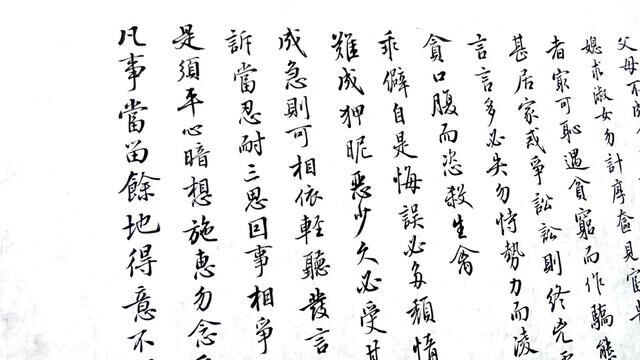 父母不
媳求淑女勿計厚奩見富
者最可恥遇貧窮而作驕態
甚居家戒爭訟訟則終兇
言言多必失勿恃勢力而凌
貪口腹而恣殺生禽
乖僻自是悔誤必多頹惰
難成狎昵惡少久必受其
成急則可相依輕聽發言
訴當忍耐三思因事相爭
是須平心暗想施惠勿念
凡事當留餘地得意不